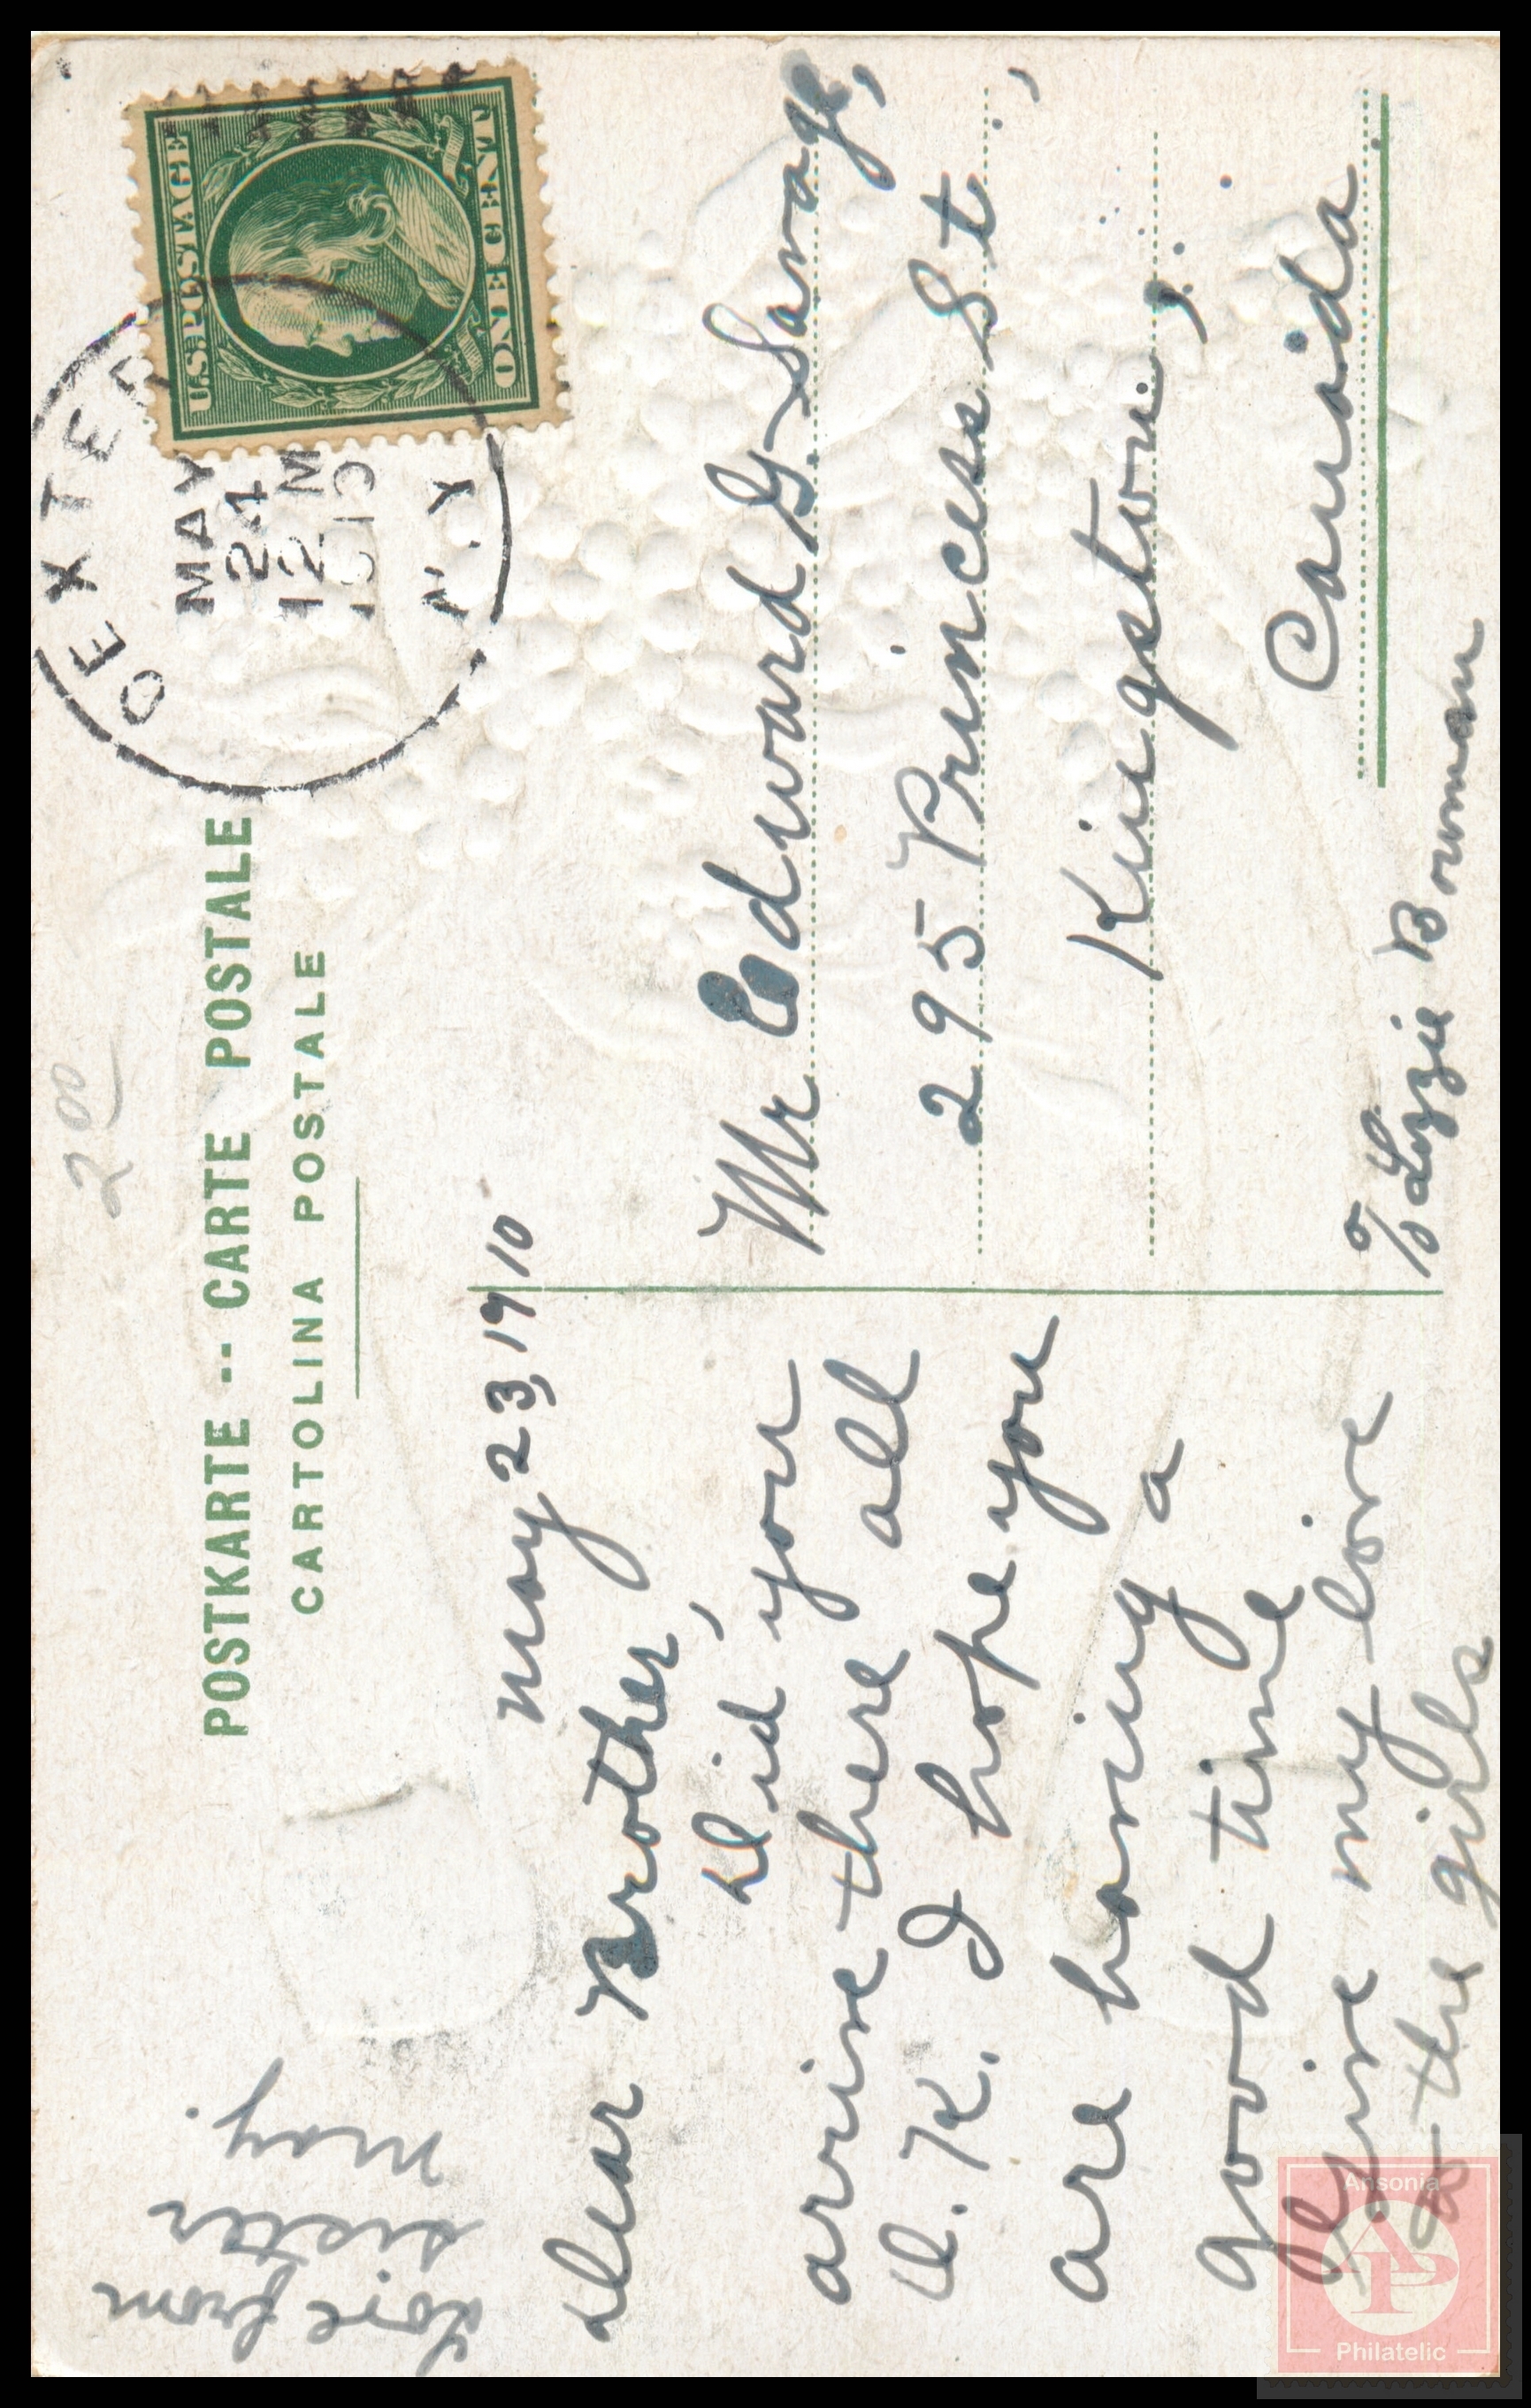 2 00
POSTKARTE -- CARTE POSTALE
CARTOLINA POSTALE
DEXTER
MAY
24
12 M
1910
N.Y.
U.S. POSTAGE
ONE CENT
May 23, 1910
Dear Brother,
Did you
arrive there all
O.K. I hope you
are having a
good time
Give my love
to the girls
Love from
sister
May.
Mr Edward G. Savage,
295 Princess St.,
Kingston,
Canada.
c/o Lizzie Bowman
Ansonia
AP
Philatelic